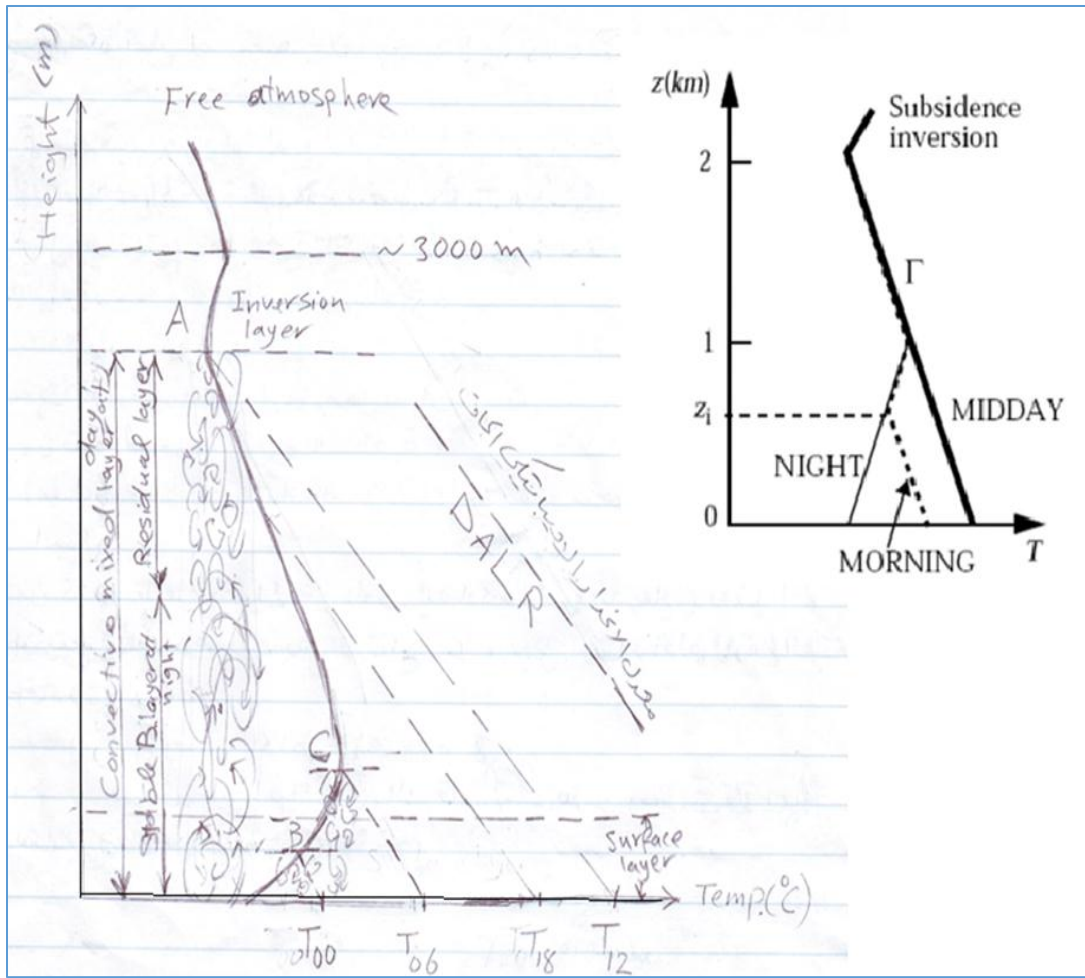 Height (m)
Free atmosphere
~ 3000 m
A
Inversion
layer
Convective mixed layer at
day
Residual layer
Stable B. layer at
night
D
DALR
C
B
Surface
layer
Temp. (°C)
T00
T06
T18
T12
z(km)
Subsidence
inversion
2
Γ
1
zi
MIDDAY
NIGHT
0
T
MORNING